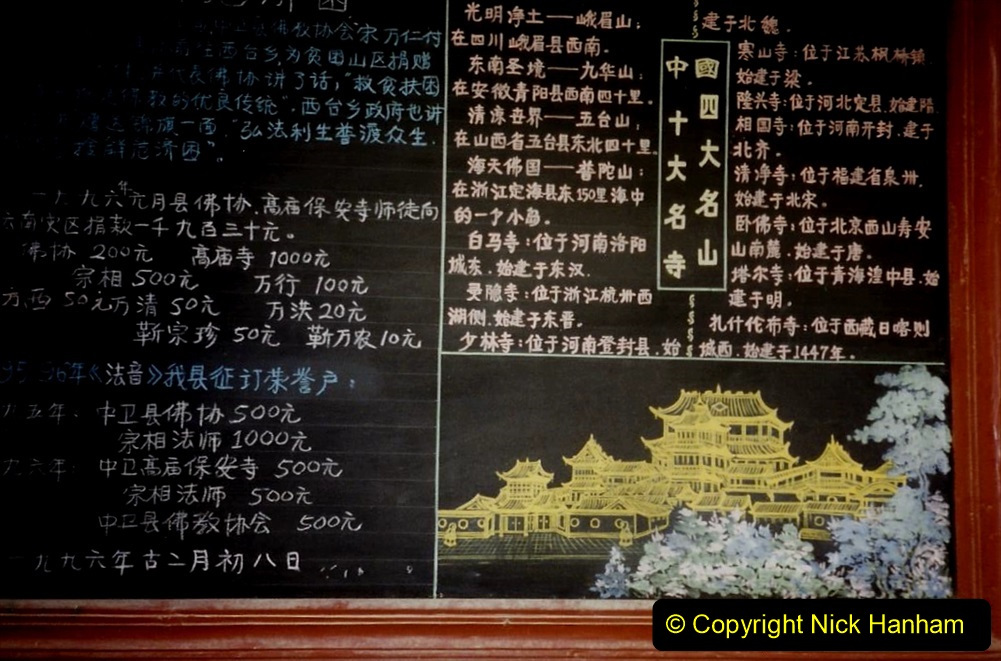 佛教协会宋万仁付
西台乡为贫困山区捐赠
代表佛协讲了话，“救贫扶困
佛教的优良传统”．西台乡政府也讲
锦旗一面“弘法利生普渡众生．
济困”。
一九九六年元月县佛协．高庙保安寺师徒向
云南灾区捐款一千九百三十元。
佛协 200元 高庙寺 1000元
宗相 500元 万行 100元
万西 50元万清 50元 万洪 20元
靳宗珍 50元 靳万农 10元
95．96年《法音》我县征订荣誉户：
九五年：中卫县佛协 500元
宗相法师 1000元
九六年：中卫高庙保安寺 500元
宗相法师 500元
中卫县佛教协会 500元
一九九六年古二月初八日
光明净土——峨嵋山；
在四川峨嵋县西南．
东南圣境——九华山；
在安微青阳县西南四十里．
清凉世界——五台山；
在山西省五台县东北四十里．
海天佛国——普陀山；
在浙江定海县东150里海中
的一个小岛．
白马寺：位于河南洛阳
城东．始建于东汉．
灵隐寺：位于浙江杭州西
湖侧．始建于东晋。
少林寺：位于河南登封县．始
建于北魏．
國四大名山
中十大名寺
寒山寺：位于江苏枫桥镇．
始建于梁．
隆兴寺：位于河北定县．始建隋
相国寺：位于河南开封．建于
北齐．
清净寺：位于福建省泉州．
始建于北宋．
卧佛寺：位于北京西山寿安
山南麓．始建于唐．
塔尔寺：位于青海湟中县．始
建于明．
扎什伦布寺：位于西藏日喀则
城西．始建于1447年．
© Copyright Nick Hanham